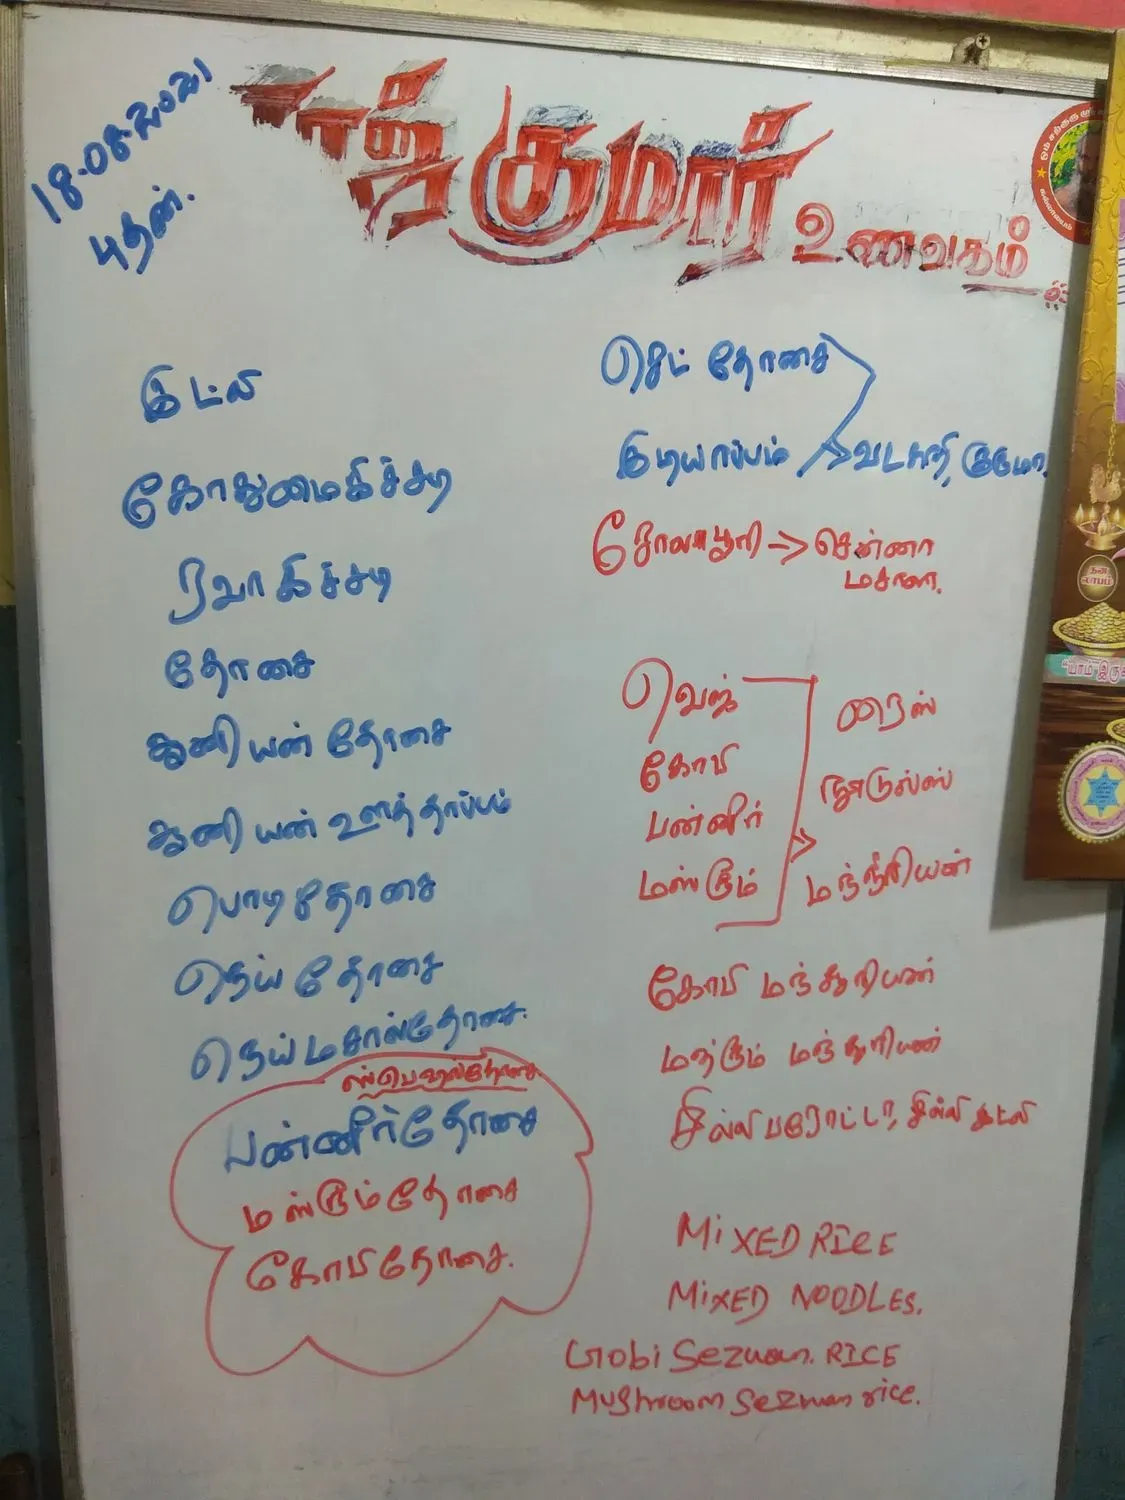 18-08-2021
புதன்.
ராஜ் குமார்
உணவகம்
இட்லி
கோதுமைகிச்சடி
ரவாகிச்சடி
தோசை
ஆனியன் தோசை
ஆனியன் ஊத்தாப்பம்
பொடிதோசை
நெய் தோசை
நெய் மசால்தோசை.
ஸ்பெஷல்தோசை
பன்னீர்தோசை
மஸ்ரூம்தோசை
கோபிதோசை.
செட் தோசை
இடியாப்பம் வடகறி, குருமா.
சோலாபூரி சென்னா
மசாலா.
வெஜ்
கோபி
பன்னீர்
மஸ்ரூம்
ரைஸ்
நூடுல்ஸ்
மஞ்சூரியன்
கோபி மஞ்சூரியன்
மஷ்ரூம் மஞ்சூரியன்
சில்லி பரோட்டா, சில்லி இட்லி
MiXED RICE
MiXED NOODLES.
Gobi Sezwan. RICE
Mushroom Sezwan rice.